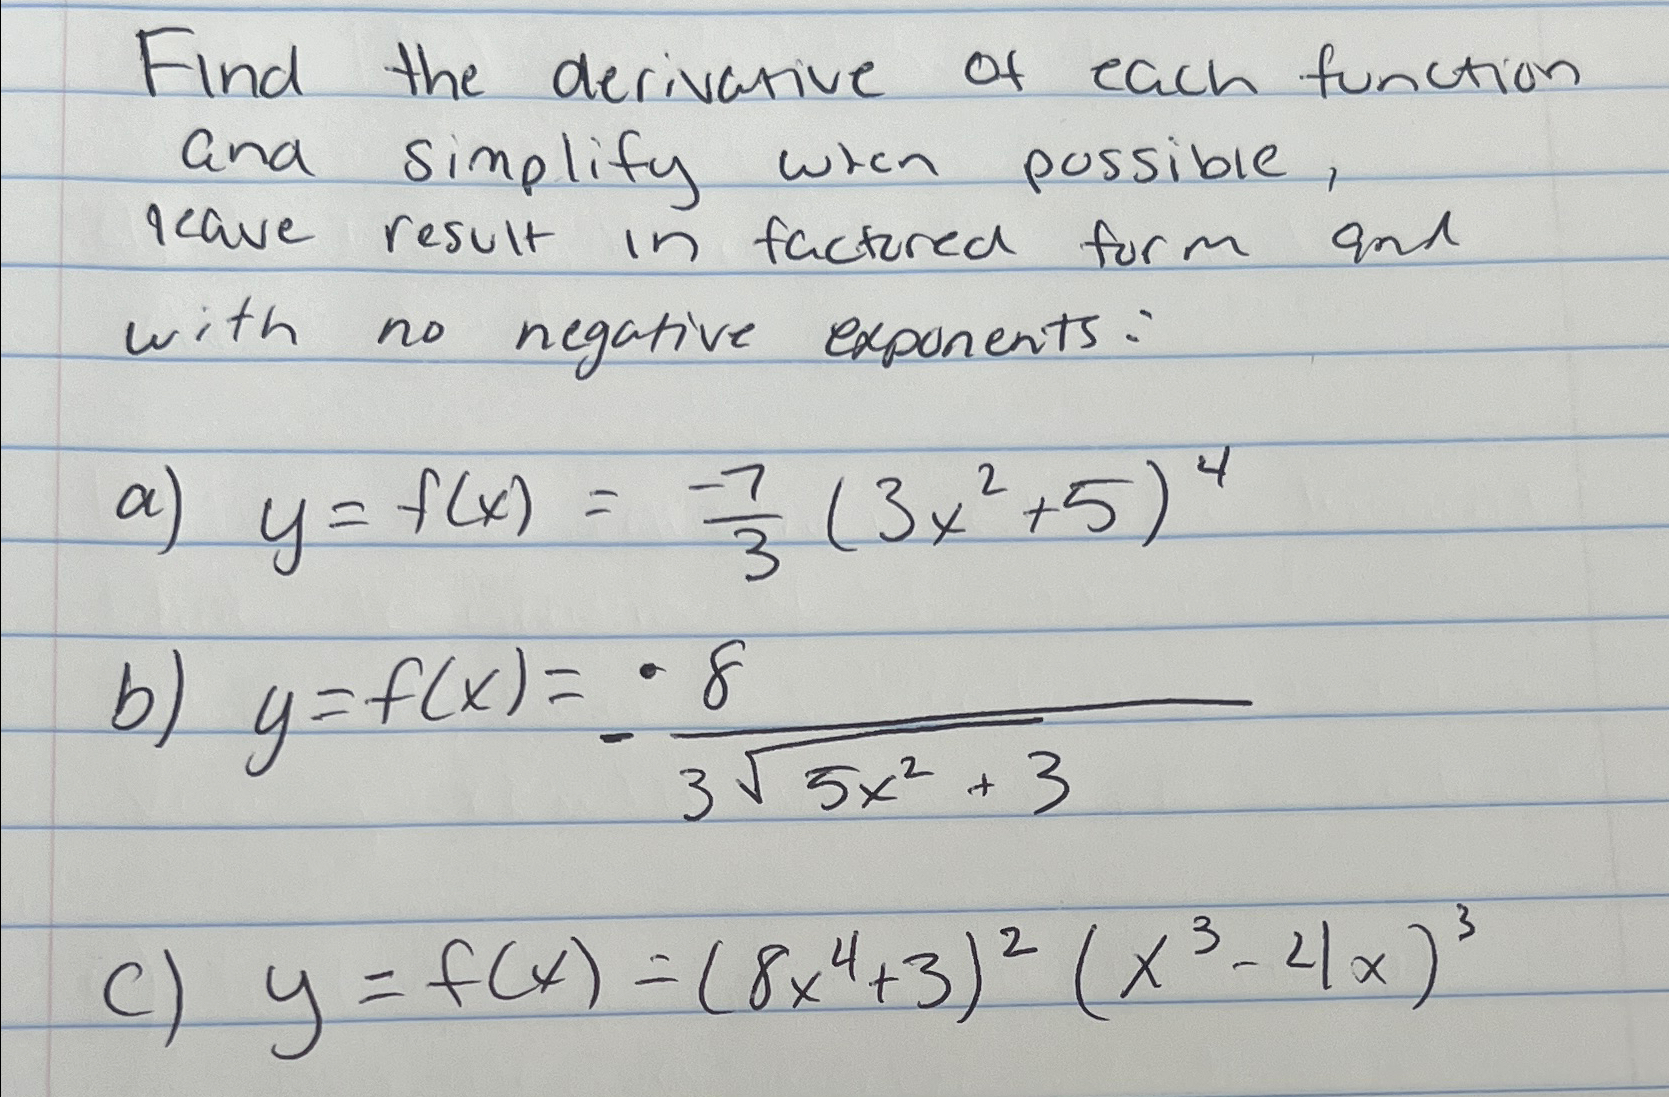 Find the derivative of each function
and simplify when possible,
leave result in factored form and
with no negative exponents:
a) y = f(x) = -7/3 (3x² + 5)⁴
b) y = f(x) = - 8/(3√(5x² + 3))
c) y = f(x) = (8x⁴ + 3)² (x³ - 4x)³